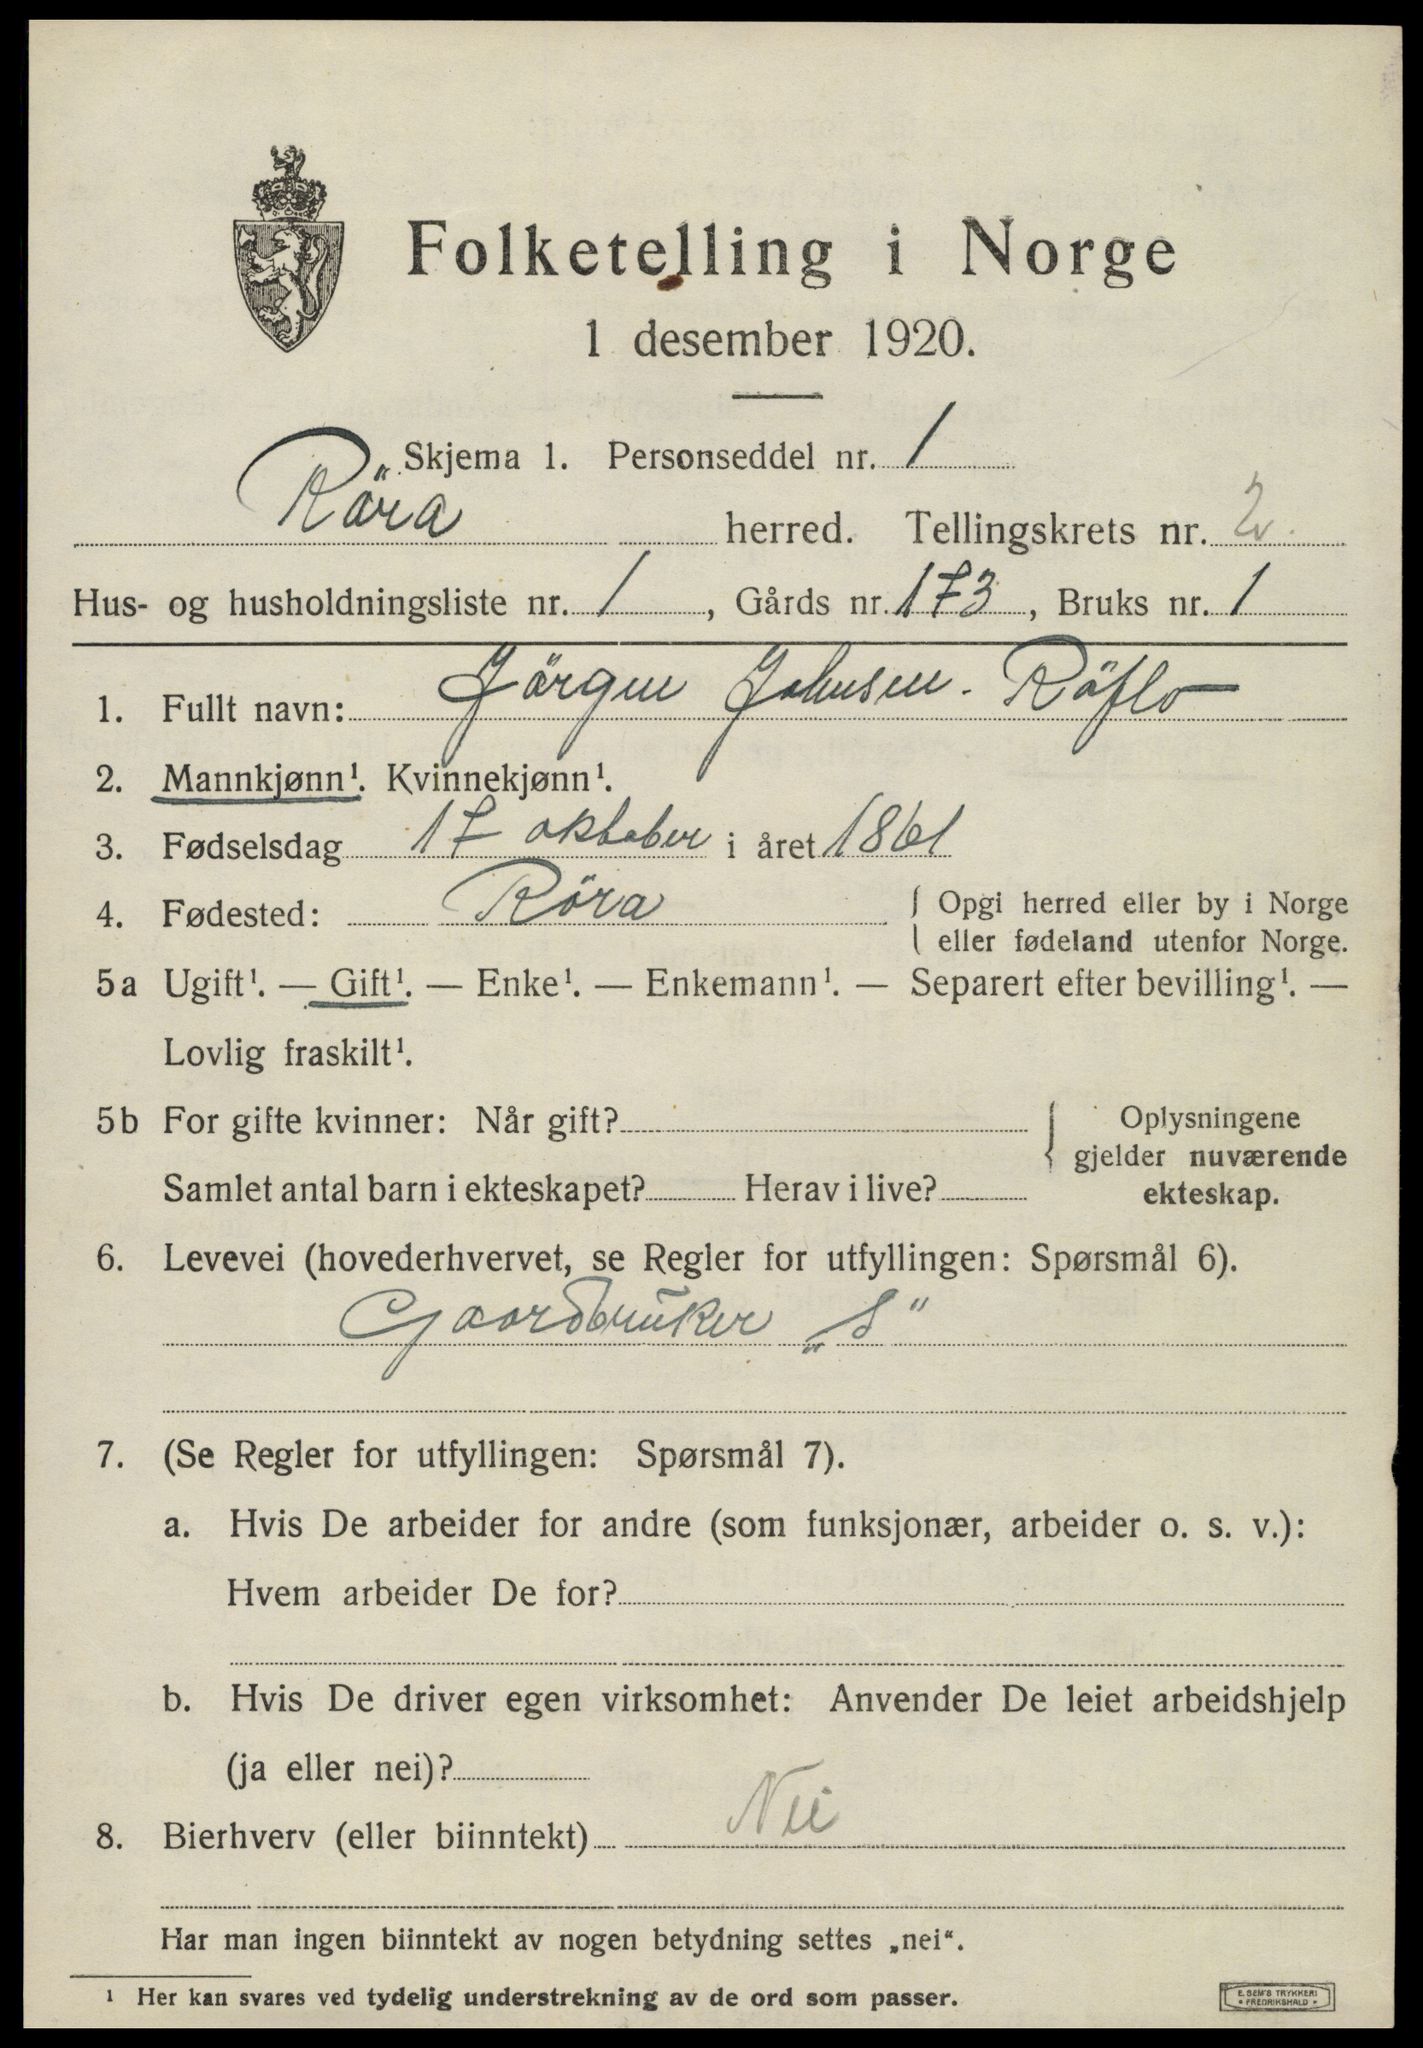 Folketelling i Norge
1 desember 1920.
Skjema 1. Personseddel nr. 1
Röra herred. Tellingskrets nr. 2.
Hus- og husholdningsliste nr. 1, Gårds nr. 173, Bruks nr. 1
1. Fullt navn: Jörgen Johnsen. Röflo
2. Mannkjønn¹. Kvinnekjønn¹.
3. Fødselsdag 17 oktober i året 1861
4. Fødested: Röra { Opgi herred eller by i Norge
eller fødeland utenfor Norge.
5a Ugift¹. — Gift¹. — Enke¹. — Enkemann¹. — Separert efter bevilling¹. —
Lovlig fraskilt¹.
5b For gifte kvinner: Når gift? { Oplysningene
gjelder nuværende
Samlet antal barn i ekteskapet? Herav i live? ekteskap.
6. Levevei (hovederhvervet, se Regler for utfyllingen: Spørsmål 6).
Gaardbruker „S"
7. (Se Regler for utfyllingen: Spørsmål 7).
a. Hvis De arbeider for andre (som funksjonær, arbeider o. s. v.):
Hvem arbeider De for?
b. Hvis De driver egen virksomhet: Anvender De leiet arbeidshjelp
(ja eller nei)?
8. Bierhverv (eller biinntekt) Nei
Har man ingen biinntekt av nogen betydning settes „nei“.
¹ Her kan svares ved tydelig understrekning av de ord som passer.
E. SEM'S TRYKKERI
• FREDRIKSHALD •